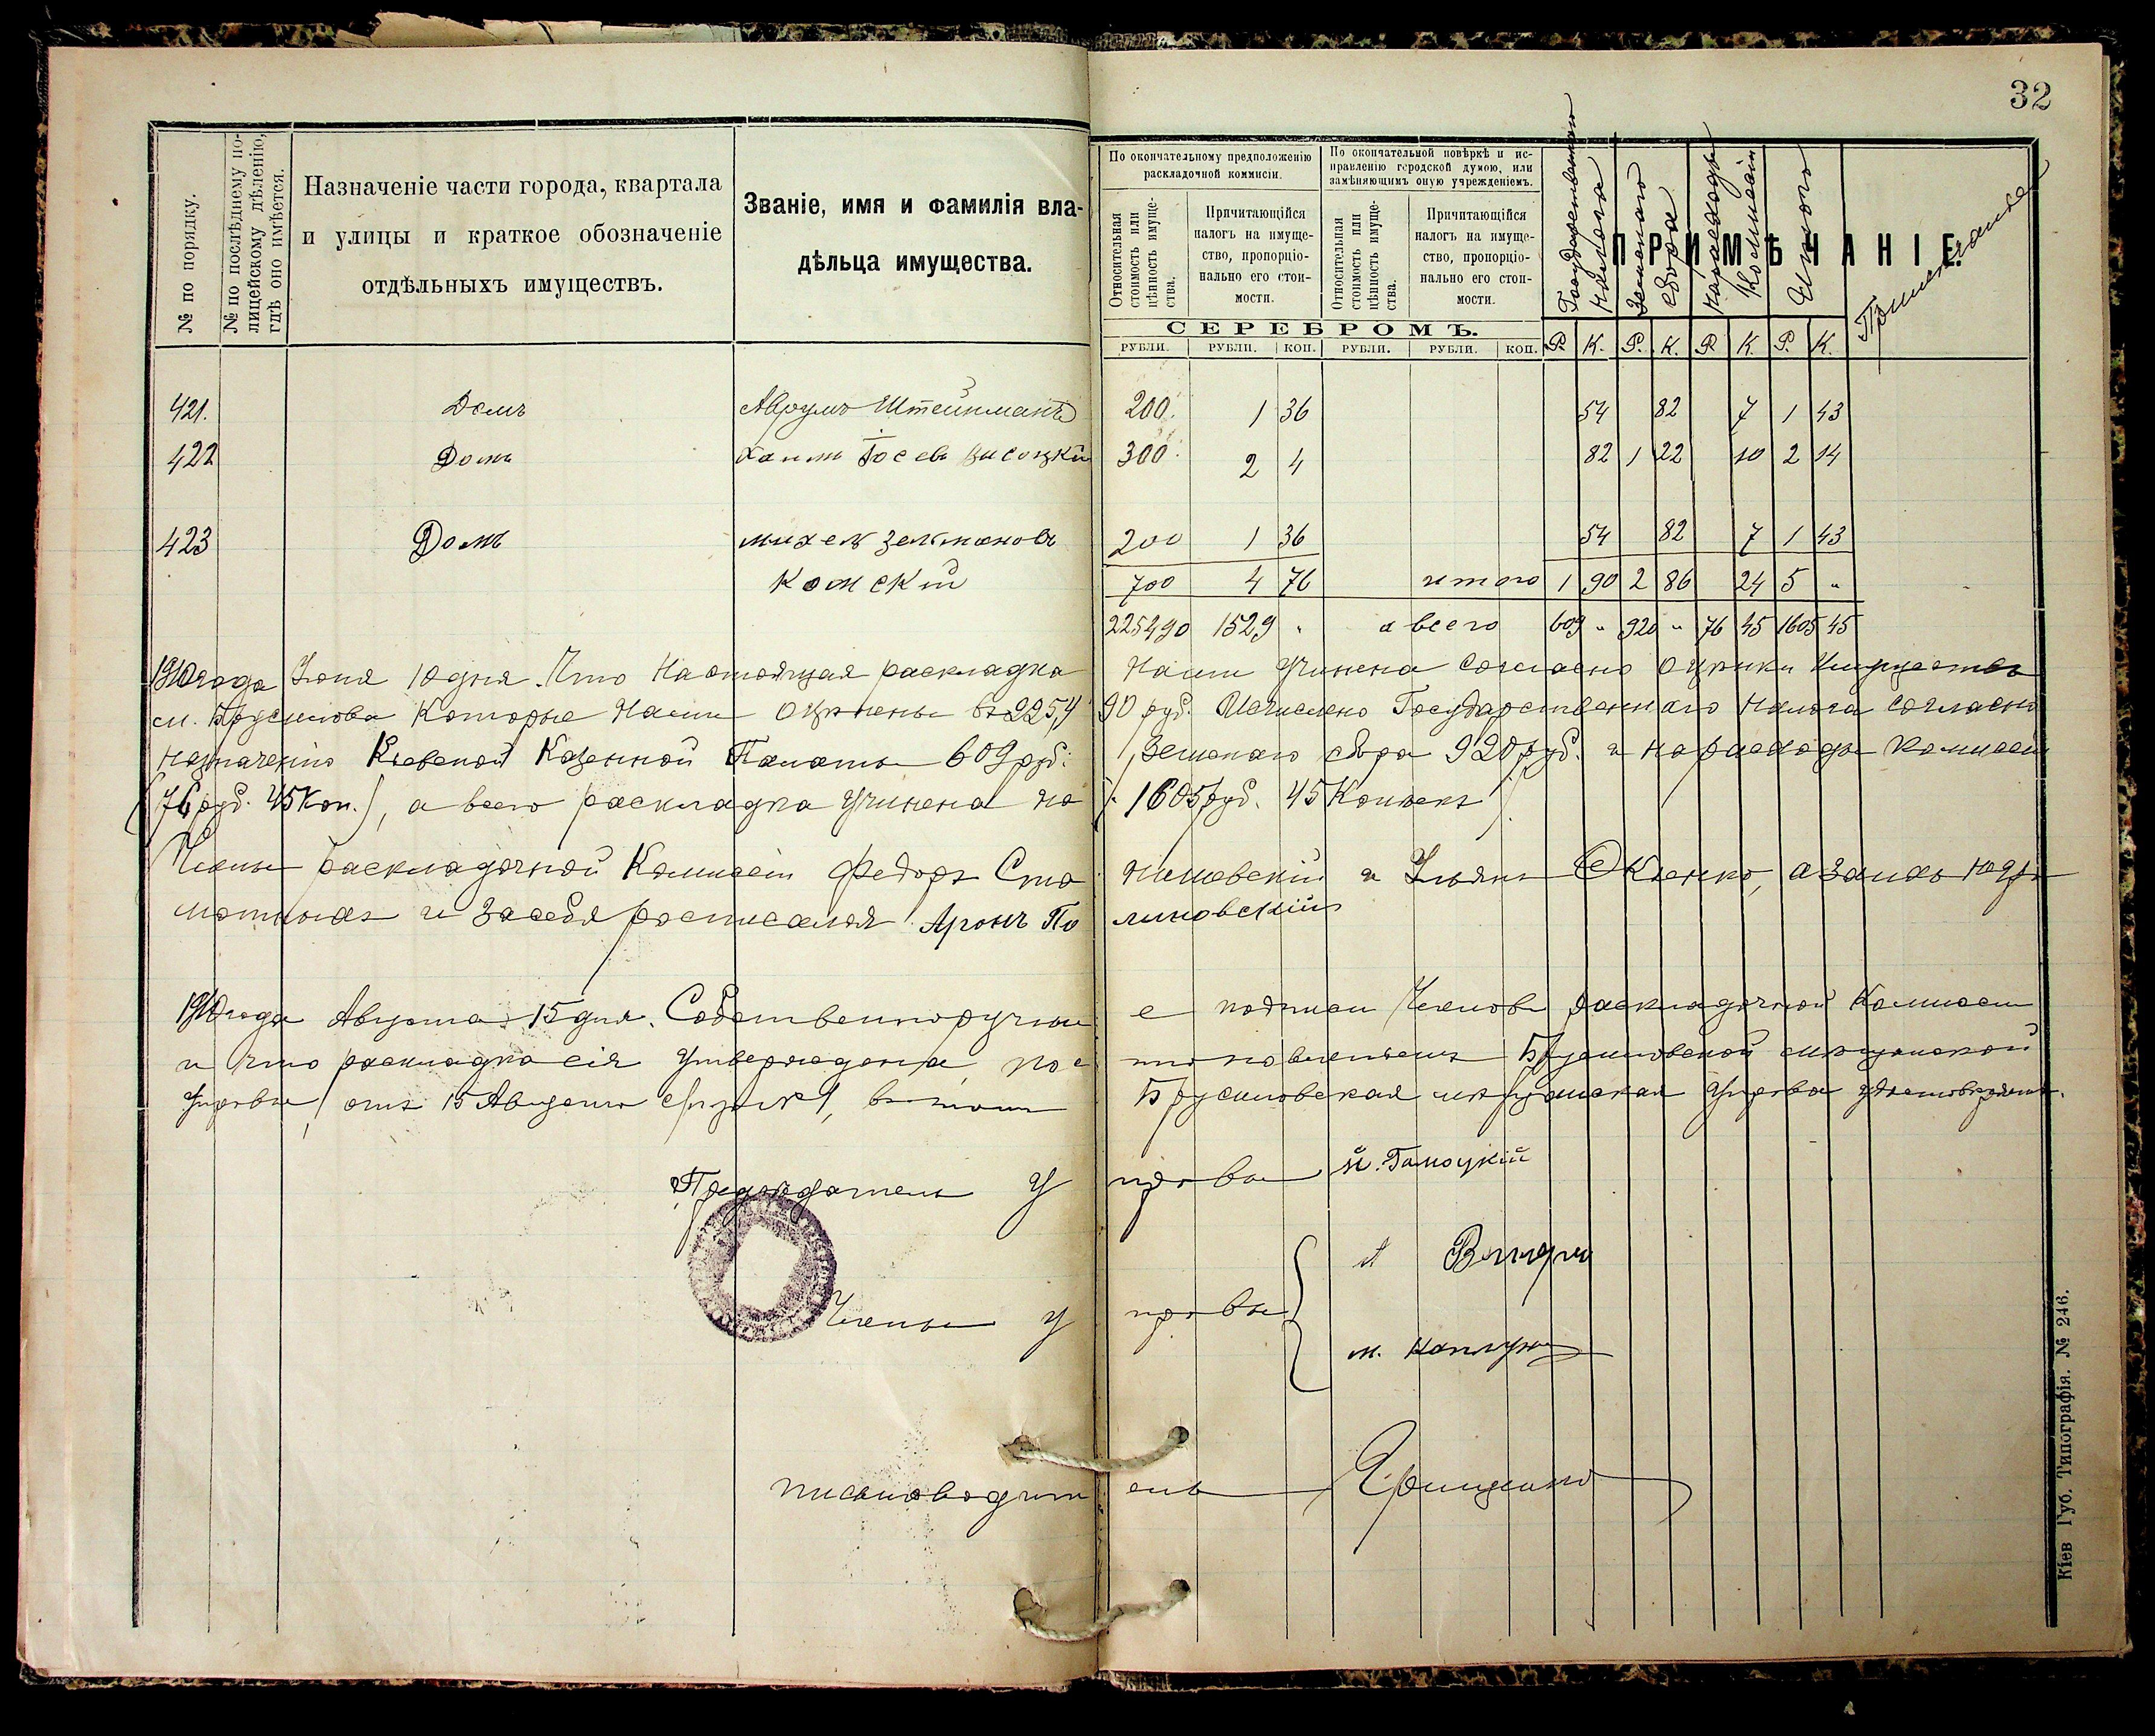 32
№ по порядку.
№ по послѣднему по-
лицейскому дѣленію,
гдѣ оно имѣется.
Назначеніе части города, квартала
и улицы и краткое обозначеніе
отдѣльныхъ имуществъ.
Званіе, имя и фамилія вла-
дѣльца имущества.
По окончательному предположенію
раскладочной коммисіи.
Относительная
стоимость или
цѣнность имуще-
ства.
Причитающійся
налогъ на имуще-
ство, пропорціо-
нально его стои-
мости.
По окончательной повѣркѣ и ис-
правленію городской думою, или
замѣняющимъ оную учрежденіемъ.
Относительная
стоимость или
цѣнность имуще-
ства.
Причитающійся
налогъ на имуще-
ство, пропорціо-
нально его стои-
мости.
СЕРЕБРОМЪ.
РУБЛИ. РУБЛИ. КОП. РУБЛИ. РУБЛИ. КОП.
Государственнаго
налога
Земскаго
сбора
На расходы
Коммисіи
Итого
ПРИМѢЧАНІЕ.
Примечание
Р. К. Р. К. Р. К. Р. К.
421. Домъ Аврумъ Штейнманъ 200. 1 36 54 82 7 1 43
422 Домъ Хаимъ Іосевъ Высоцкій 300. 2 4 82 1 22 10 2 14
423 Домъ михель Зельмановъ 200 1 36 54 82 7 1 43
Комскій 700 4 76 итого 1 90 2 86 24 5 "
225490 1529 " а всего 609 " 920 " 76 45 1605 45
1910 года Іюня 10 дня. Что настоящая раскладка нами учинена согласно оцѣнки имуществъ
м. Брусилова которые нами оцѣнены въ 225490 руб. Исчислено Государственнаго налога согласно
назначенію Кіевской Казенной Палаты 609 руб. Земскаго сбора 920 руб. и на расходы Комисіи
(76 руб. 45 коп.), а всего раскладка учинена на 1605 руб. 45 Копѣекъ.
Члены раскладочной Комисіи Федоръ и Ульянъ а за нихъ негра
мотныхъ и за себя росписался Аронъ Полиновскій
1910 года Августа 15 дня. Собственноручные подписи Членовъ раскладочной Комисіи
и что раскладка сія утверждена постановленіемъ Брусиловской мѣщанской
Управы отъ 15 Августа въ томъ Брусиловская мѣщанская Управа удостовѣряетъ.
Предсѣдатель Управы
Члены Управы {
м. Каплунъ
Письмоводитель
Кіев Губ. Типографія. № 246.